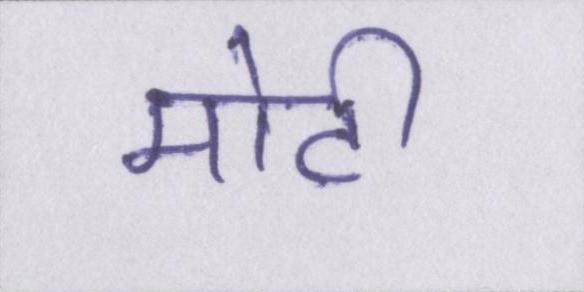 मोटी